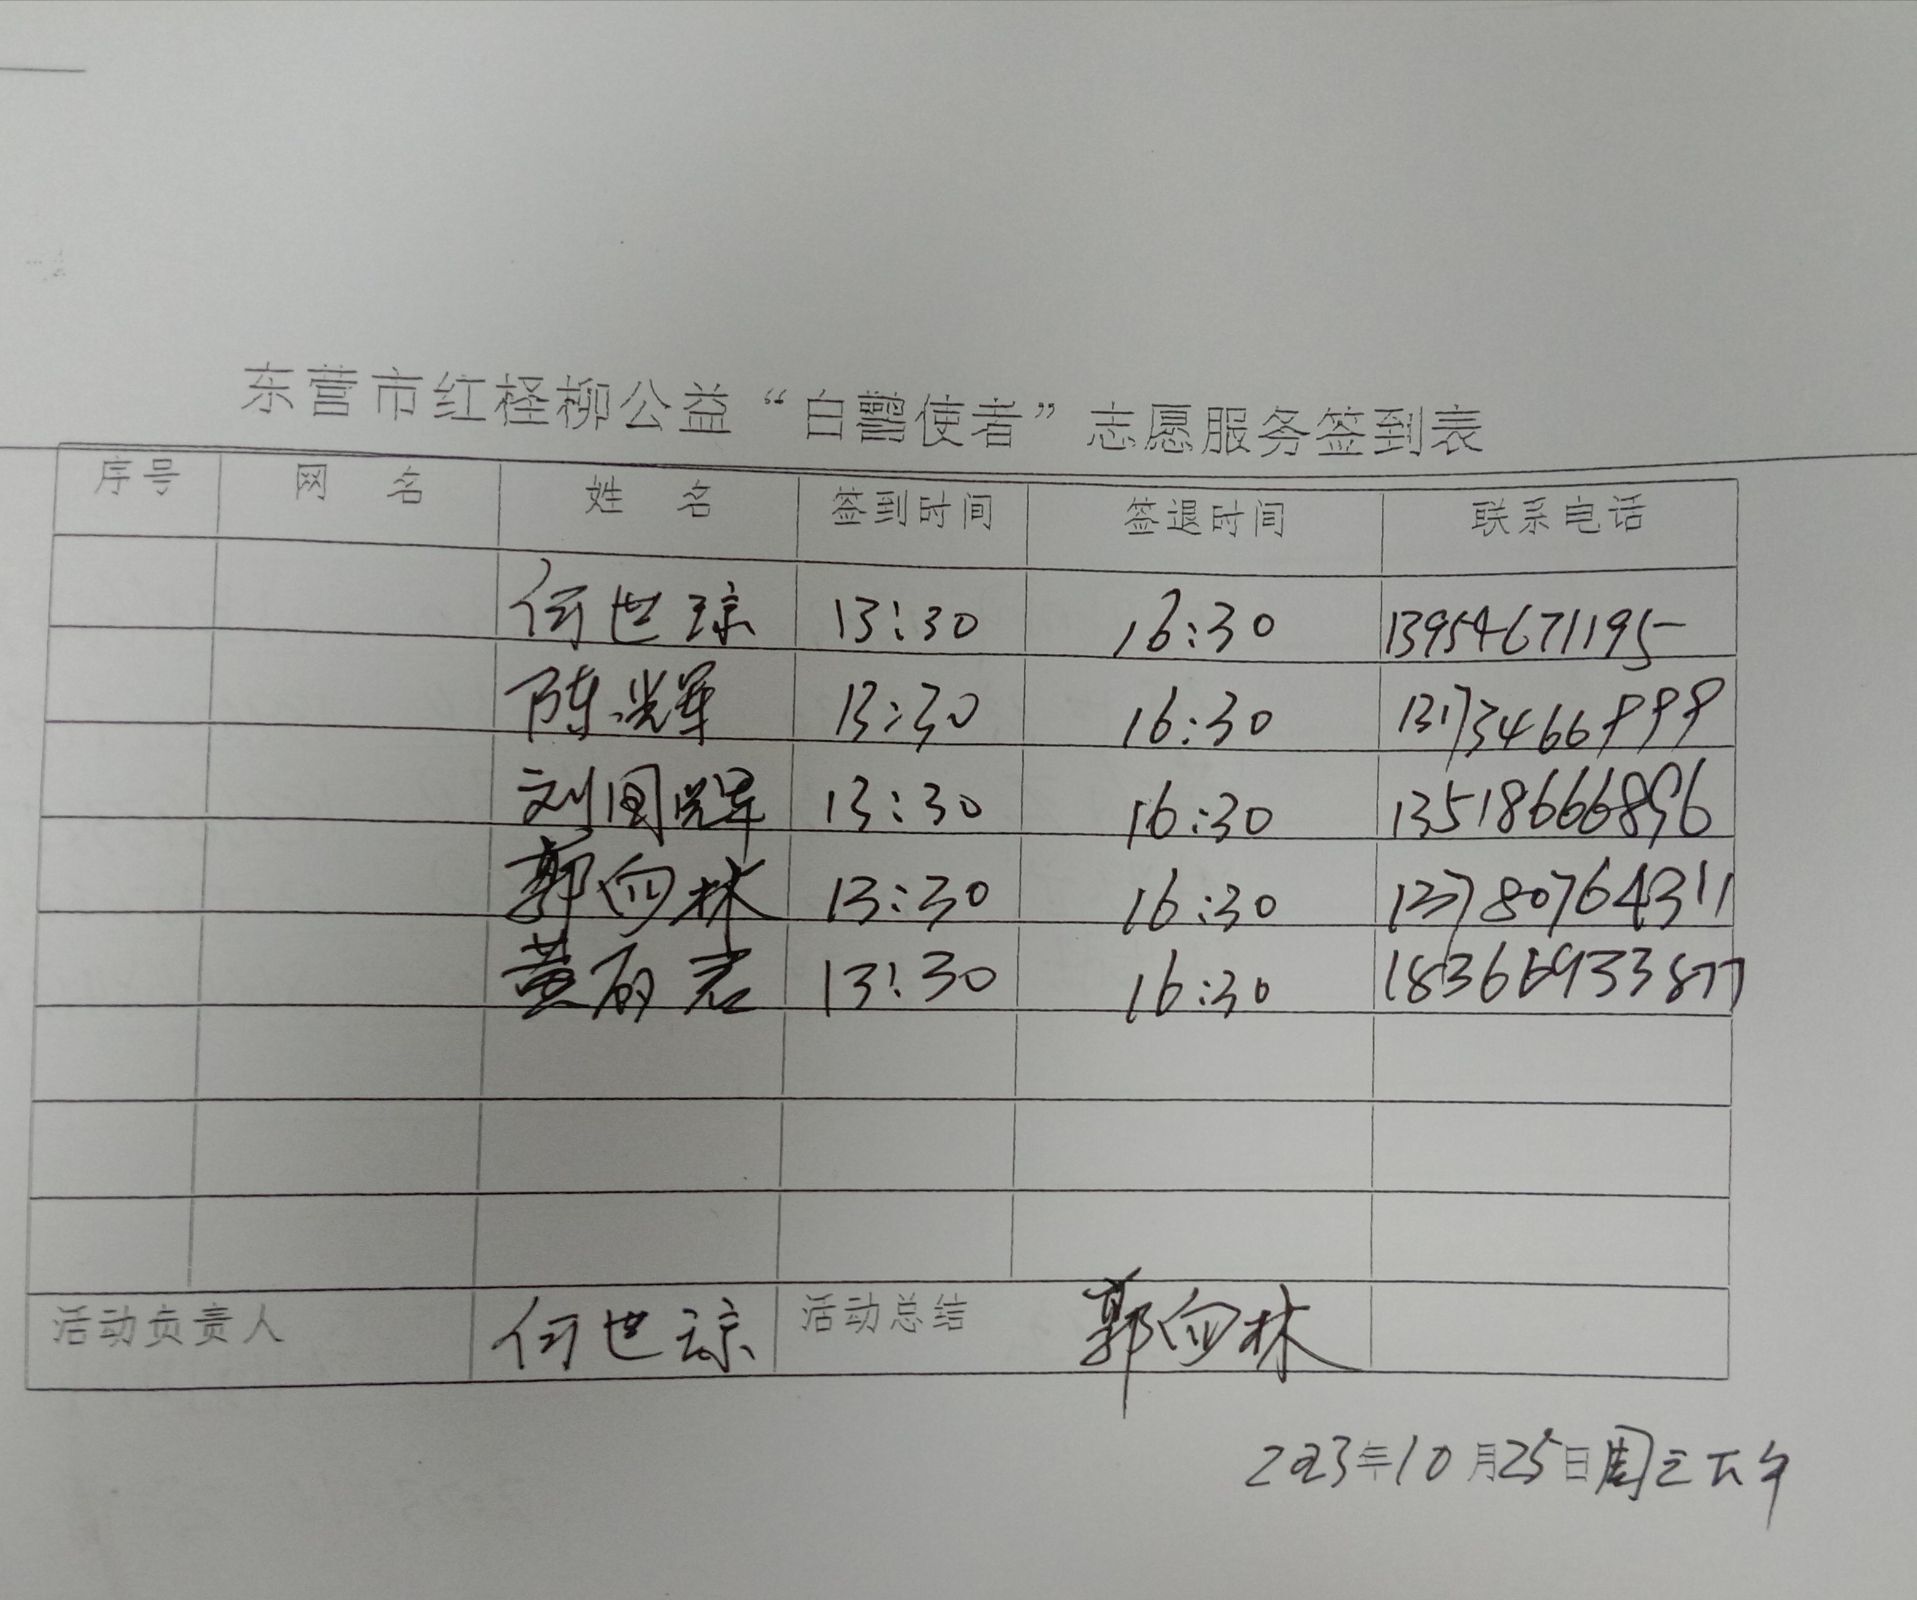 东营市红柽柳公益“白鹭使者”志愿服务签到表
序号 网 名 姓 名 签到时间 签退时间 联系电话
何世琼 13:30 16:30 13954671195
陈光辉 13:30 16:30
刘国辉 13:30 16:30 13518666896
郭向林 13:30 16:30 13780764311
黄丽君 13:30 16:30 18366933877
活动负责人 何世琼 活动总结 郭向林
2023年10月25日周三下午